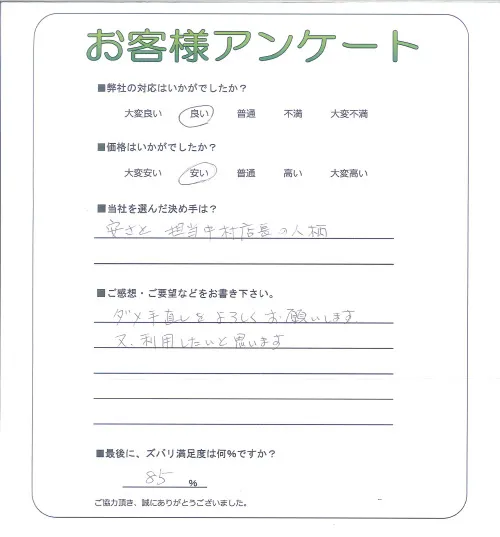 お客様アンケート
■弊社の対応はいかがでしたか？
大変良い 良い 普通 不満 大変不満
■価格はいかがでしたか？
大変安い 安い 普通 高い 大変高い
■当社を選んだ決め手は？
安さと 担当中村店長の人柄
■ご感想・ご要望などをお書き下さい。
ダメ手直しをよろしくお願いします
又、利用したいと思います
■最後に、ズバリ満足度は何%ですか？
85 %
ご協力頂き、誠にありがとうございました。